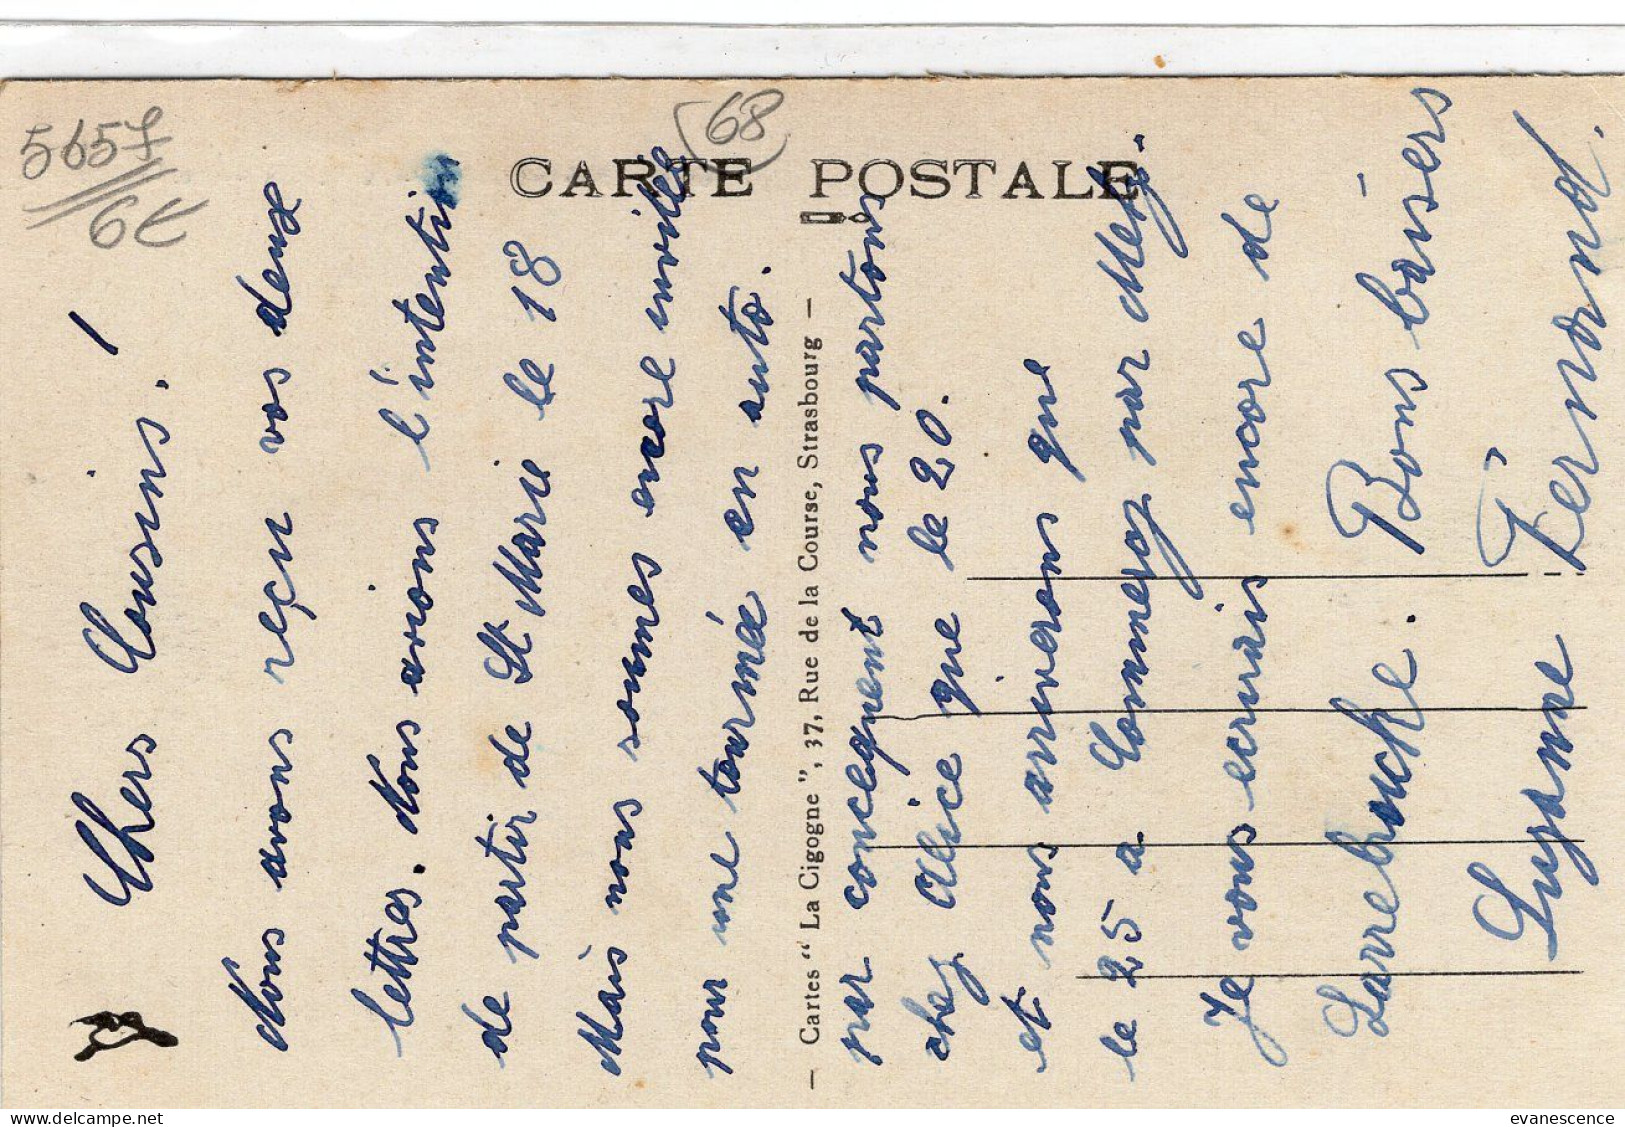 5657
6€
(68)
CARTE POSTALE
Chers Cousins. !
Nous avons reçu vos deux
lettres. Nous avions l'intention
de partir de St Marie le 18
Mais nous sommes encore invités
pour une tournée en auto.
— Cartes “ La Cigogne ”, 37, Rue de la Course, Strasbourg —
par concequent nous partons
chez Alice que le 20.
et nous arriverons que
le 25 a Commerçy par Metz.
Je vous ecrirais encore de
Sarrebrucke. Bons baisers
Suzanne Fernand.
evanescence